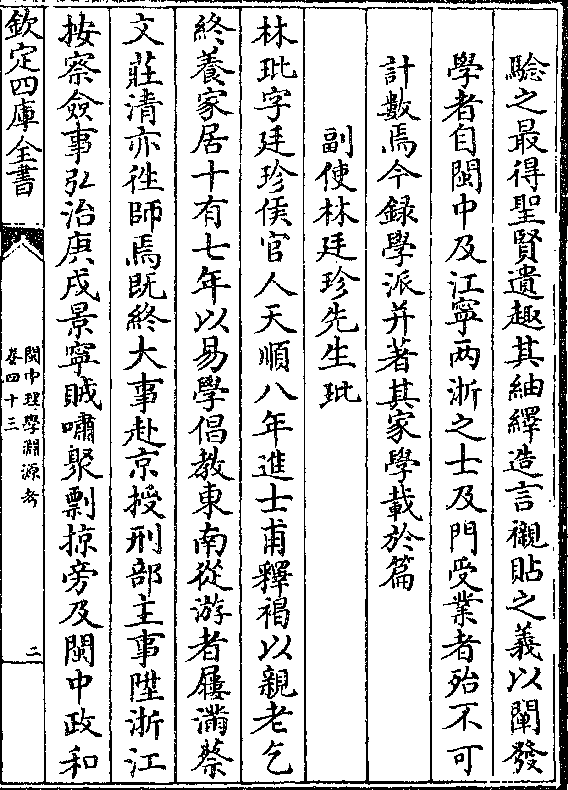 驗之最得聖賢遺趣其紬繹造言襯貼之義以闡發
學者自閩中及江寧两浙之士及門受業者殆不可
計數焉今録學派并著其家學載於篇
副使林廷珍先生玭
林玭字廷珍侯官人天順八年進士甫釋褐以親老乞
終養家居十有七年以易學倡教東南從游者屨滿蔡
文莊清亦徃師焉既終大事赴京授刑部主事陞浙江
按察僉事弘治庚戌景寧賊嘯聚剽掠旁及閩中政和
欽定四庫全書
閩中理學淵源考
卷四十三
三